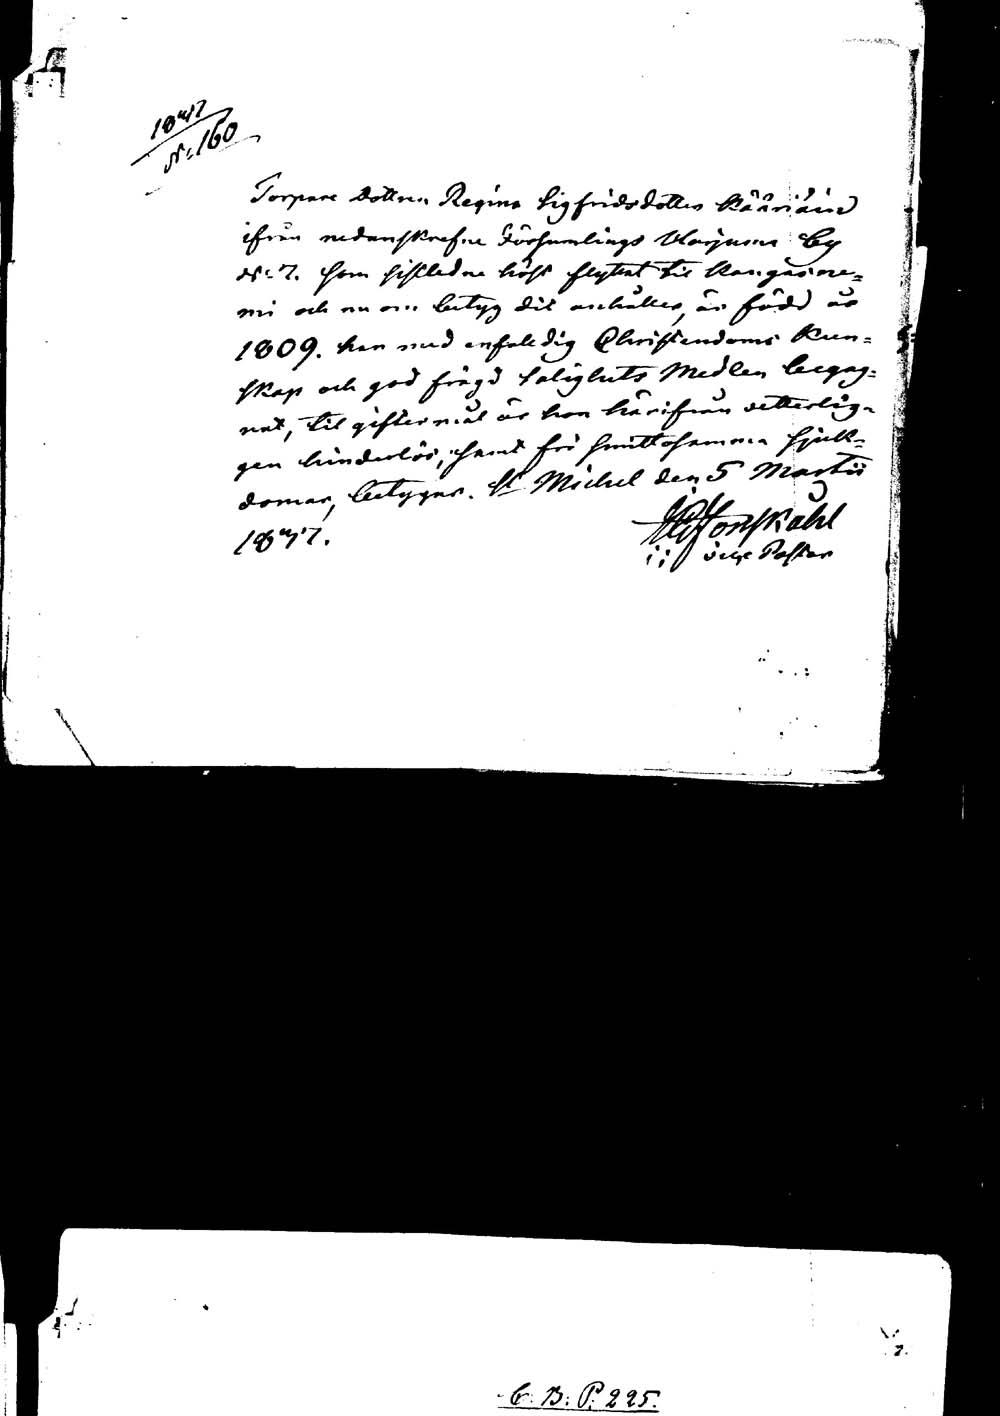 1847
N: 160
Torpare Dottren Regina Sigfridsdotter Kääriäin
ifrån nedanskrefne Församlings Norjuma by
N: 7. som sistledne höst flyttat til Kangasnie=
mi och nu om betyg dit anhåller, är född år
1809. har med enfaldig Christendoms Kun=
skap och god frägd salighets Medlen begag=
nat, til giftermål är hon härifrån vetterlig=
gen hinderlös, samt fri smittosamma sjuk=
domar, betygar. St Michel den 5 Martii
1847.
vice Pastor
C. B: P. 225.